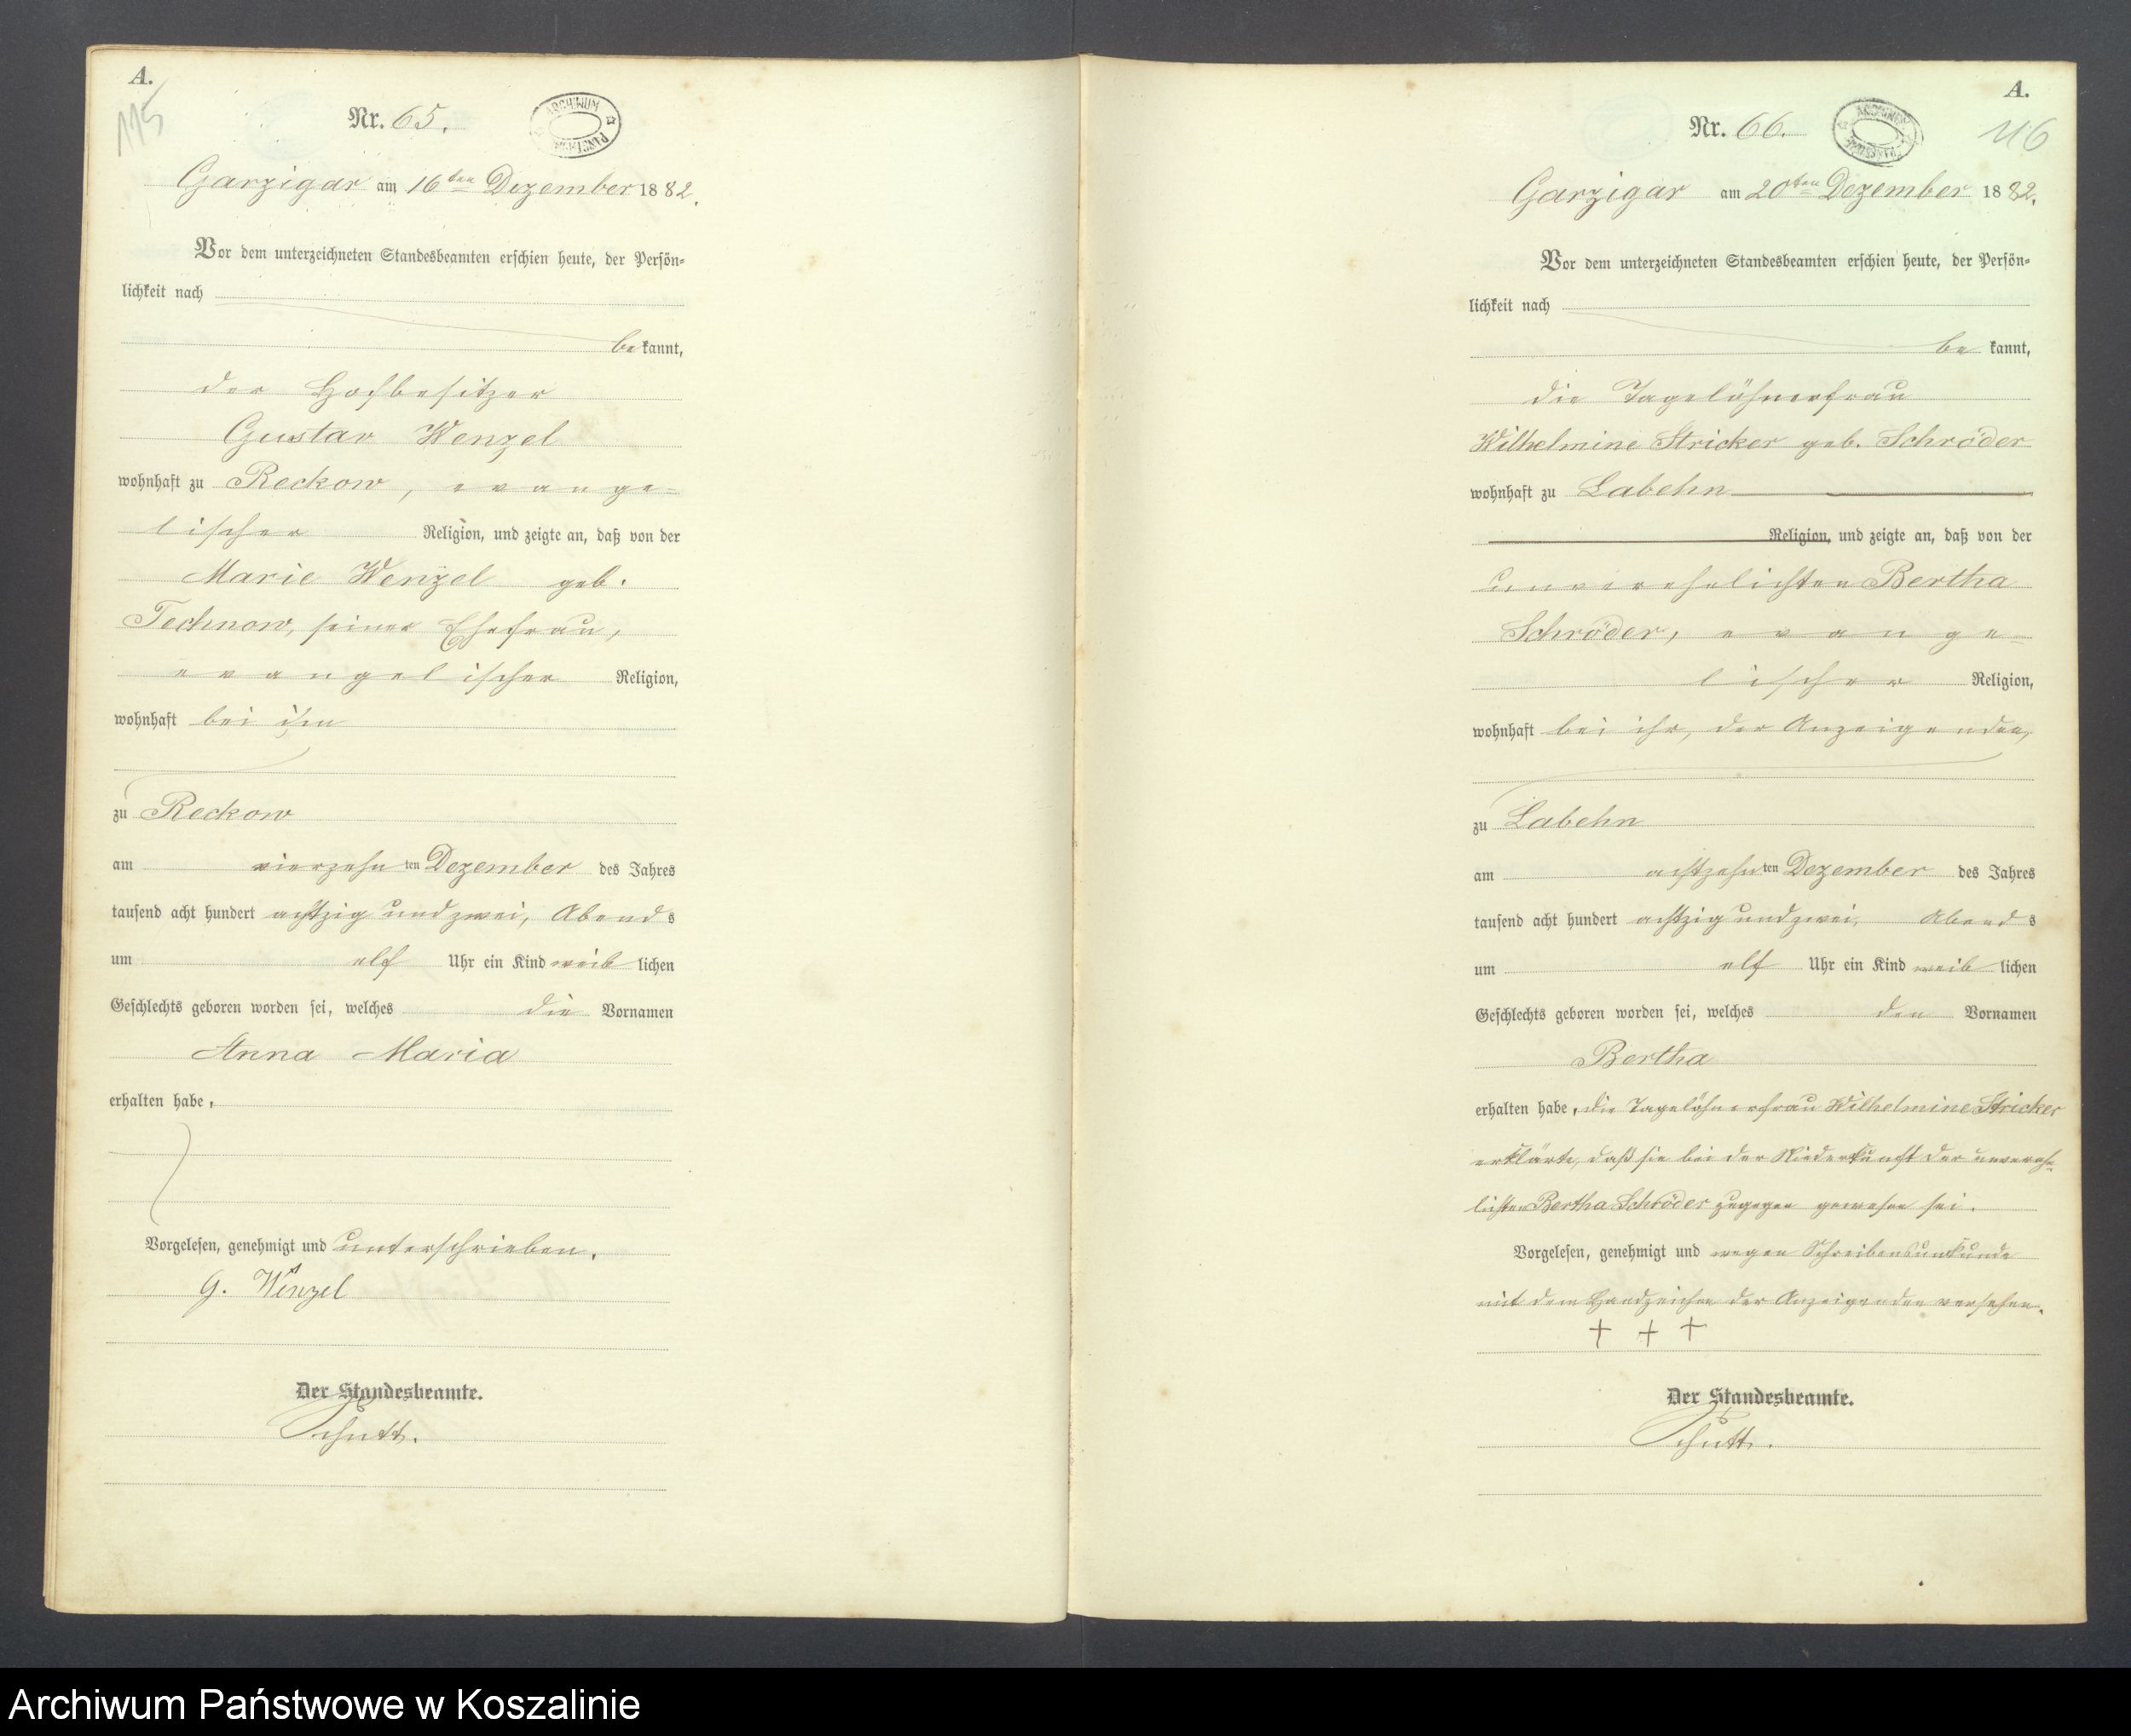 A.
115
Nr. 65.
ARCHIWUM PAŃSTWOWE
Garzigar am 16ten Dezember 1882.
Vor dem unterzeichneten Standesbeamten erschien heute, der Persön-
lichkeit nach
bekannt,
der Hofbesitzer
Gustav Wenzel
wohnhaft zu Reckow, evange-
lischer Religion, und zeigte an, daß von der
Marie Wenzel geb.
Technow, seiner Ehefrau,
evangelischer Religion,
wohnhaft bei ihm
zu Reckow
am vierzehnten Dezember des Jahres
tausend acht hundert achtzig und zwei, Abends
um elf Uhr ein Kind weiblichen
Geschlechts geboren worden sei, welches die Vornamen
Anna Maria
erhalten habe.
Vorgelesen, genehmigt und unterschrieben.
G. Wenzel
Der Standesbeamte.
Schütt.
A.
116
Nr. 66.
ARCHIWUM PAŃSTWOWE
Garzigar am 20ten Dezember 1882.
Vor dem unterzeichneten Standesbeamten erschien heute, der Persön-
lichkeit nach
bekannt,
die Tagelöhnerfrau
Wilhelmine Stricker geb. Schröder
wohnhaft zu Labehn
Religion, und zeigte an, daß von der
unverehelichten Bertha
Schröder, evange-
lischer Religion,
wohnhaft bei ihr, der Anzeigenden,
zu Labehn
am achtzehnten Dezember des Jahres
tausend acht hundert achtzig und zwei, Abends
um elf Uhr ein Kind weiblichen
Geschlechts geboren worden sei, welches den Vornamen
Bertha
erhalten habe, die Tagelöhnerfrau Wilhelmine Stricker
erklärte, daß sie bei der Niederkunft der unverehe-
lichten Bertha Schröder zugegen gewesen sei.
Vorgelesen, genehmigt und wegen Schreibensunkunde
mit dem Handzeichen der Anzeigenden versehen.
+ + +
Der Standesbeamte.
Schütt.
Archiwum Państwowe w Koszalinie